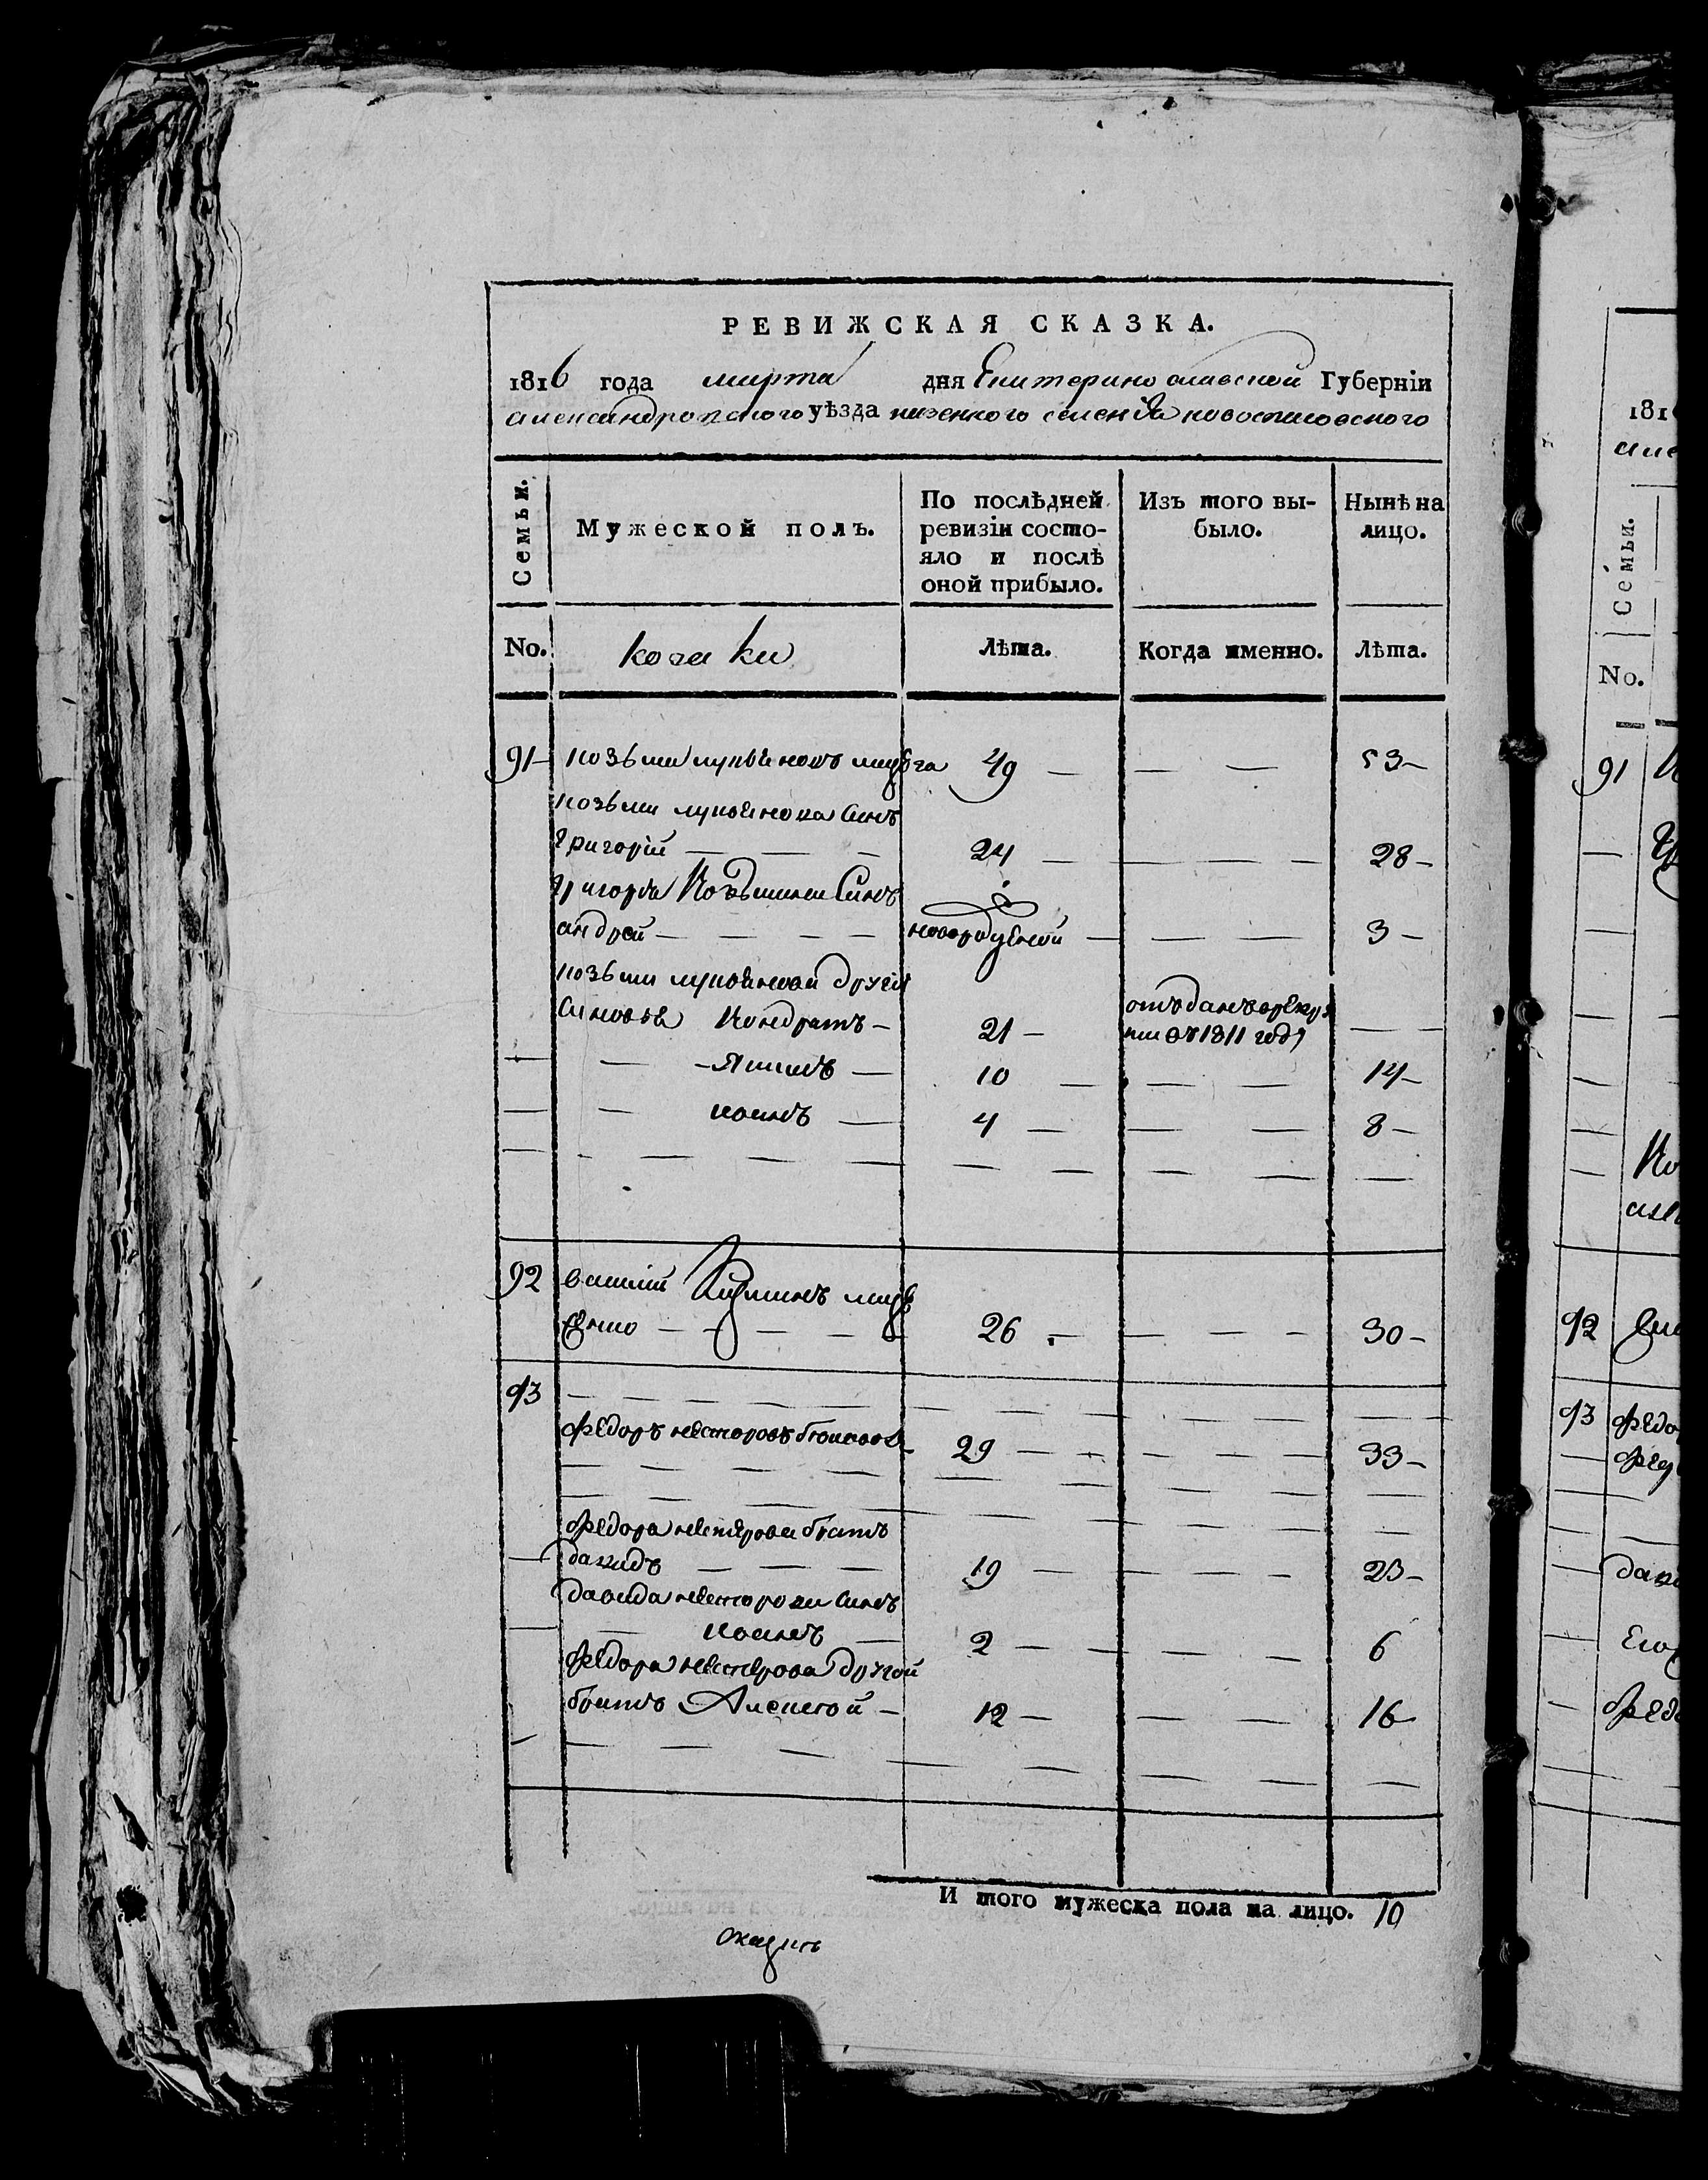 РЕВИЖСКАЯ СКАЗКА.
1816 года марта дня Екатеринославской Губерніи
александровского уѣзда казенного селенія
Семьи.
Мужеской полъ.
По послѣдней ревизіи состояло и послѣ оной прибыло.
Изъ того выбыло.
Нынѣ на лицо.
No.
козаки
Лѣта.
Когда именно.
Лѣта.
91 козьма лукьяновъ 49 53
козьмы лукьянова сынъ
григорій 24 28
григорія козьмина сынъ
андрей новорожденой 3
козьмы лукьянова другія
сыновья Кондратъ 21 отъданъ врекру
ты въ 1811 году
Якимъ 10 14
иванъ 4 8
92 василий
26 30
93
федоръ несторовъ 29 33
федора нестерова братъ
давидъ 19 23
давида несторова сынъ
иванъ 2 6
федора нестерова другой
братъ Алексей 12 16
И того мужеска пола на лицо. 10
181
No.
91
92
93 федо